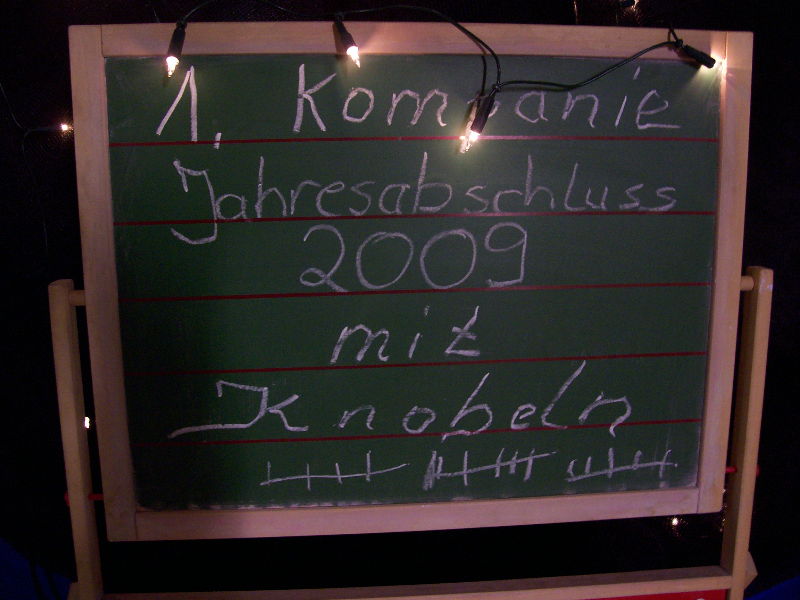 1. Kompanie
Jahresabschluss
2009
mit
Knobeln